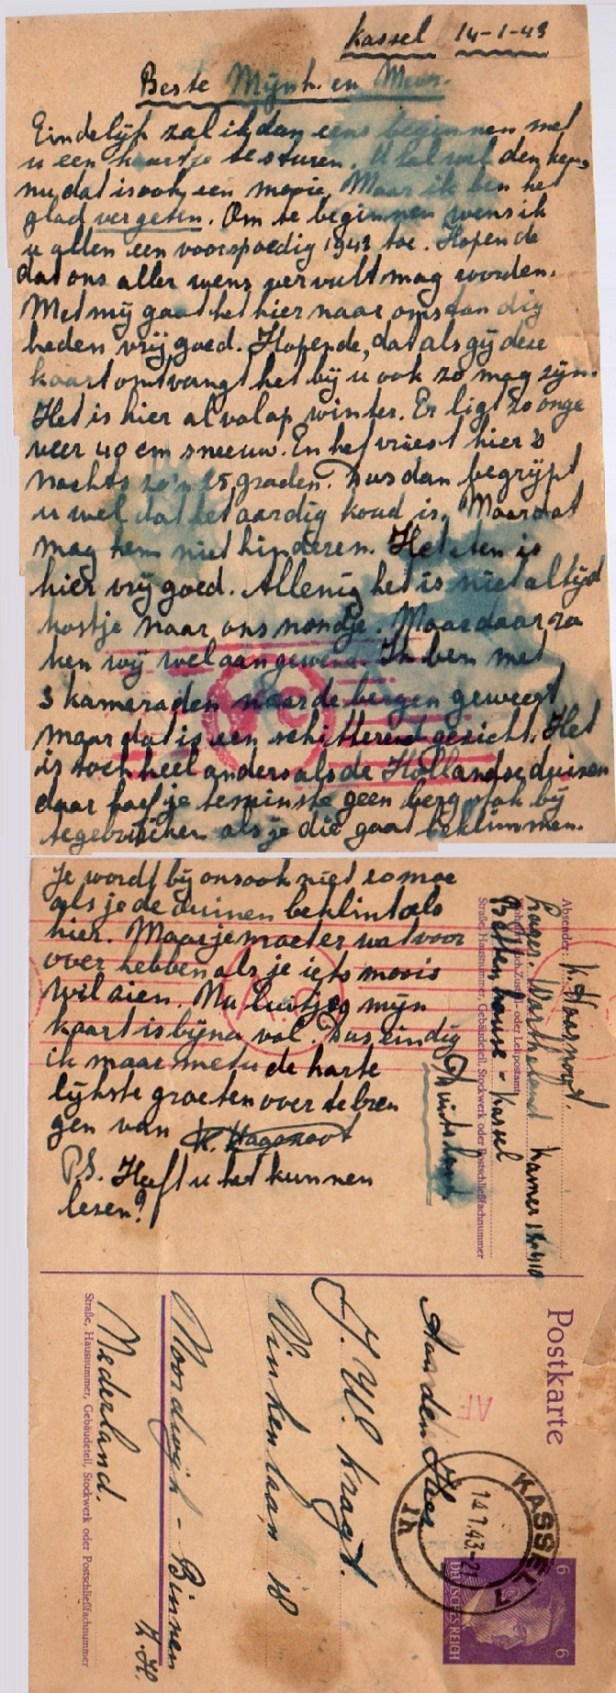 Kassel 14-1-43
Beste Mijnh. en Mevr.
Eindelijk zal ik dan eens beginnen met
u een kaartje te sturen. U zal wel denken,
nu dat is ook een mooie. Maar ik ben het
glad vergeten. Om te beginnen wens ik
u allen een voorspoedig 1943 toe. Hopende
dat ons aller wens vervult mag worden.
Met mij gaat het hier naar omstandig
heden vrij goed. Hopende, dat als gij deze
kaart ontvangt het bij u ook zo mag zijn.
Het is hier al volop winter. Er ligt zo onge
veer 40 cm sneeuw. En het vriest hier 's
nachts zo'n 25 graden. Dus dan begrijpt
u wel dat het aardig koud is. Maar dat
mag hem niet hinderen. Het eten is
hier vrij goed. Allenig het is niet altijd
kostje naar ons mondje. Maar daar ra
ken wij wel aan gewend. Ik ben met
3 kameraden naar de bergen geweest
maar dat is een schitterend gezicht. Het
is toch heel anders als de Hollandse duinen
daar hoef je tenminste geen bergstok bij
te gebruiken als je die gaat beklimmen.
Je wordt bij ons ook niet zo moe
als je de duinen beklimt als
hier. Maar je moet er wat voor
over hebben als je iets moois
wil zien. Nu luitjes mijn
kaart is bijna vol. Dus eindig
ik maar met u de harte
lijkste groeten over te bren
gen van K. Haasnoot
P.S. Heeft u het kunnen
lezen?
Absender: K. Haasnoot.
Lager. Wartheland Kamer
Bettenhause - Kassel
Duitsland
Straße, Hausnummer, Gebäudeteil, Stockwerk oder Postschließfachnummer
Postkarte
AF
KASSEL 7
14.1.43.-21
1h
6 6
DEUTSCHES REICH
Aan den Heer
J. W. Kragt.
Vinkenlaan 18
Noordwijk - Binnen
Z.H.
Nederland.
Straße, Hausnummer, Gebäudeteil, Stockwerk oder Postschließfachnummer